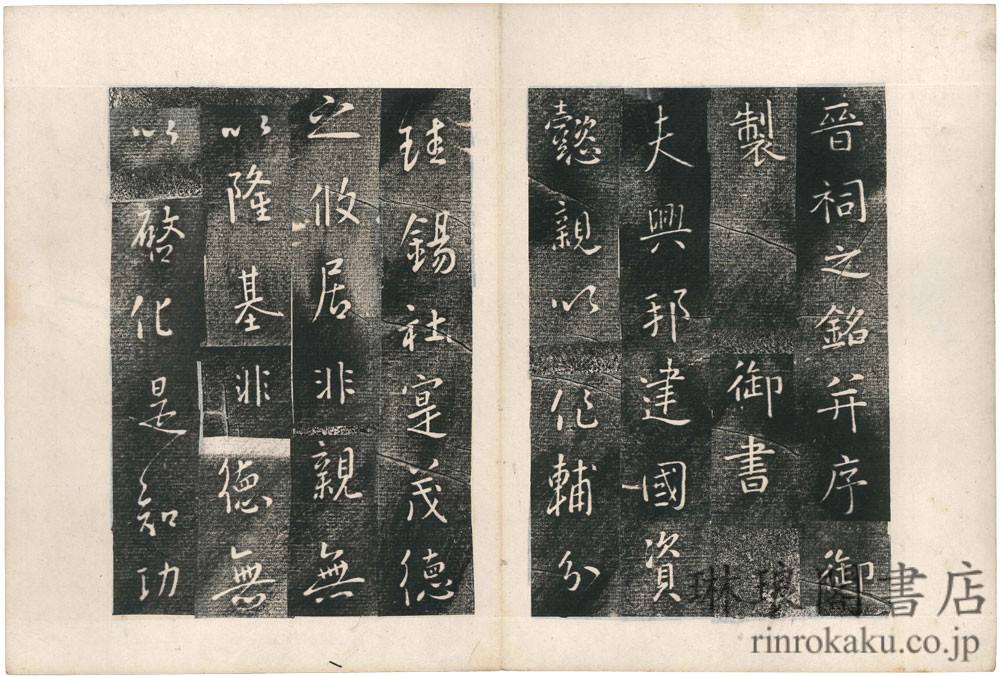 晉祠之銘并序 御
製 御書
夫興邦建國資
懿親以作輔分
珪錫社寔茂德
之攸居非親無
以隆基非德無
以啓化是知功
琳琅閣書店
rinrokaku.co.jp